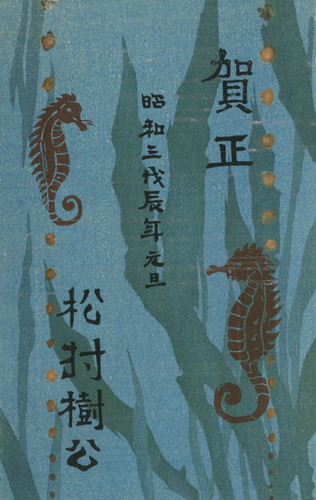 賀正
昭和三戊辰年元旦
松村樹公